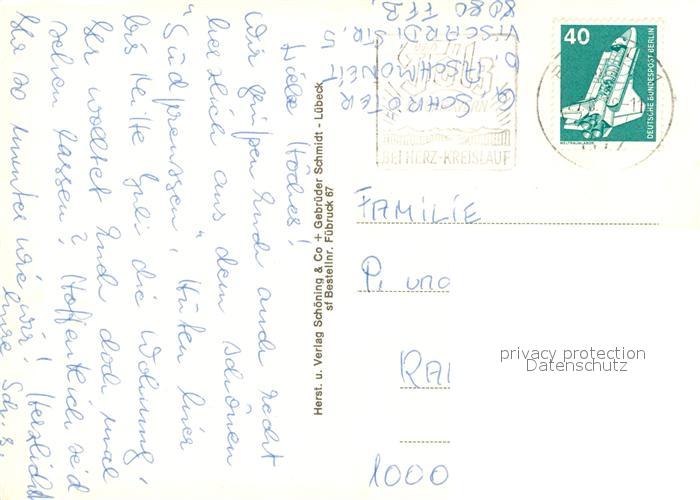 Liebe
Wir grüßen Euch auch recht
herzlich aus dem schönen
"Südpreussen", Hüten hier
bis Mitte Juli die Wohnung.
Ihr wolltet Euch doch mal
sehen lassen? Hoffentlich seid
Ihr so munter wie wir! Herzlichst
Eure
Herst. u. Verlag Schöning & Co + Gebrüder Schmidt - Lübeck
sf Bestellnr. Fübruck 67
G. SCHRÖTER
VISCARDISTR. 5
8080 FFB
BEI HERZ-KREISLAUF
40
DEUTSCHE BUNDESPOST BERLIN
WELTRAUMLABOR
FAMILIE
P. und
RAI
1000
privacy protection
Datenschutz